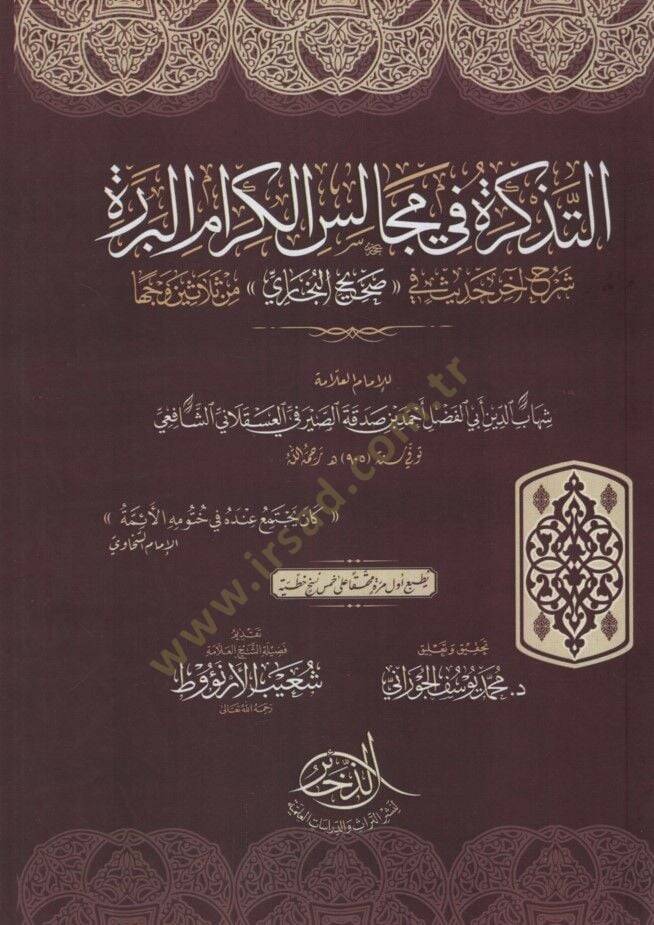 التَّذْكِرَةُ فِي مَجَالِسِ الْكِرَامِ الْبَرَرَةِ
شرح آخر حديث في «صحيح البخاري» من ثلاثين وجها
للإمام العلامة
شهاب الدين أبي الفضل أحمد بن صدقة الصيرفي العسقلاني الشافعي
توفي سنة (٩٠٥) هـ رحمه الله
«كان يجتمع عنده في ختومه الأئمة»
الإمام السخاوي
يطبع أول مرة محققا على خمس نسخ خطية
تحقيق وتعليق
د. محمد يوسف الجوراني
تقديم
فضيلة الشيخ العلامة
شعيب الأرنؤوط
رحمه الله تعالى
الذخائر
لنشر التراث والدراسات العلمية
www.irsad.com.tr